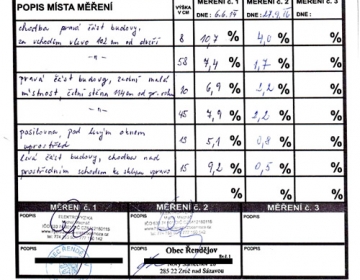 POPIS MÍSTA MĚŘENÍ VÝŠKA V CM MĚŘENÍ č. 1 MĚŘENÍ č. 2 MĚŘENÍ č. 3
DNE: 6.6.14 DNE: DNE:
chodba pravá část budovy,
za vchodem vlevo 8 10,7 % 4,0 % %
-"- 58 7,4 % 1,7 % %
pravá část budovy, zadní malá
místnost, 10 6,9 % 1,2 % %
-"- 45 7,9 % 1,2 % %
posilovna pod levým oknem
uprostřed 13 5,1 % 0,8 % %
levá část budovy, chodba nad
prostředním schodem ke sklepu vpravo 15 9,2 % 0,5 % %
% % %
MĚŘENÍ č. 1 MĚŘENÍ č. 2 MĚŘENÍ č. 3
PODPIS PODPIS PODPIS
PODPIS PODPIS PODPIS
Obec Řendějov
285 22 Zruč nad Sázavou